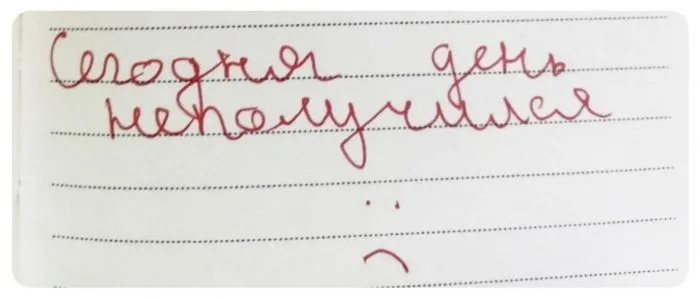 Сегодня день
неполучился
:(